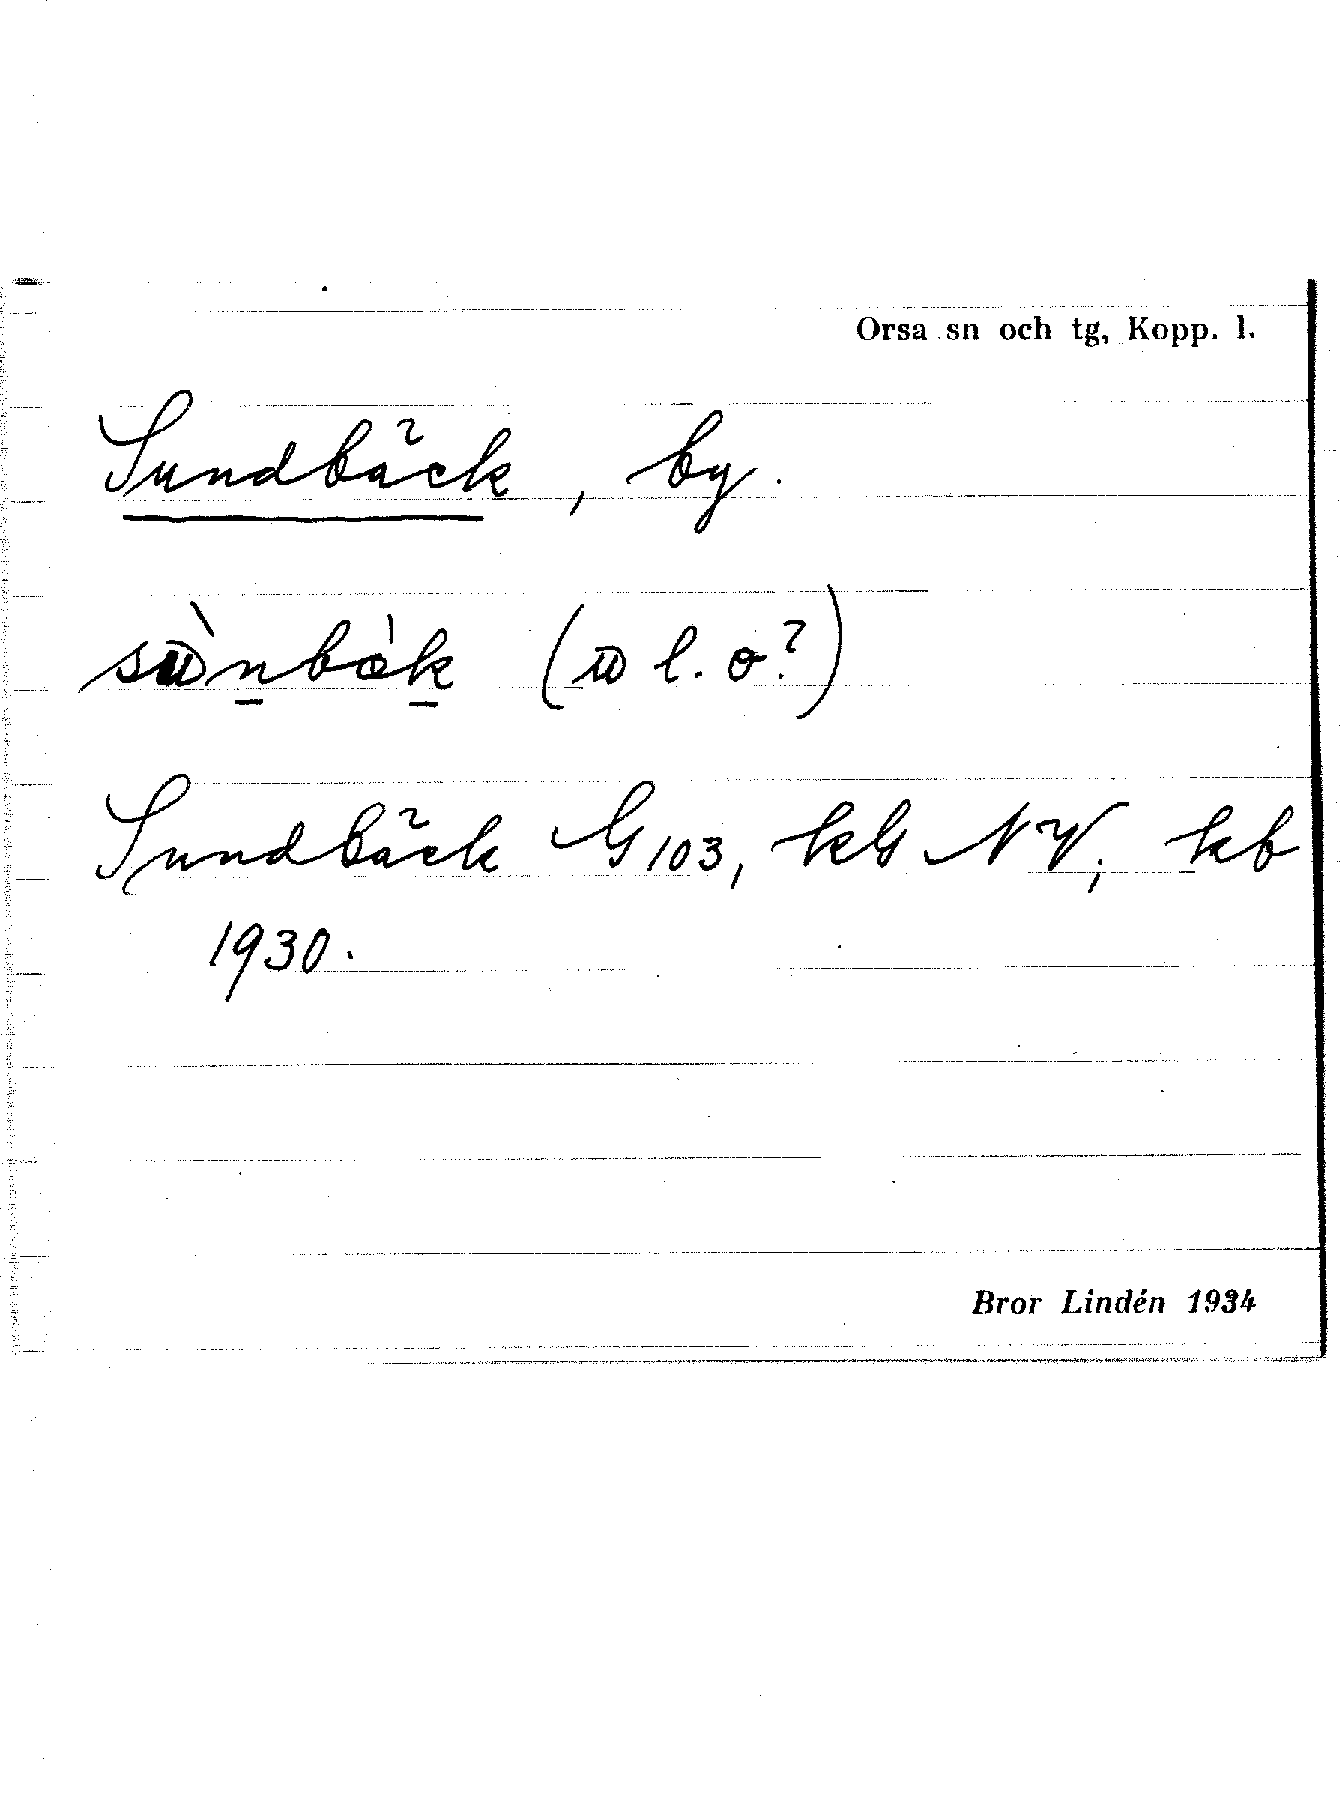 Orsa sn och tg, Kopp. l.
Sundbäck, by.
(l. o?)
Sundbäck G103, kG NV; kb
1930.
Bror Lindén 1934